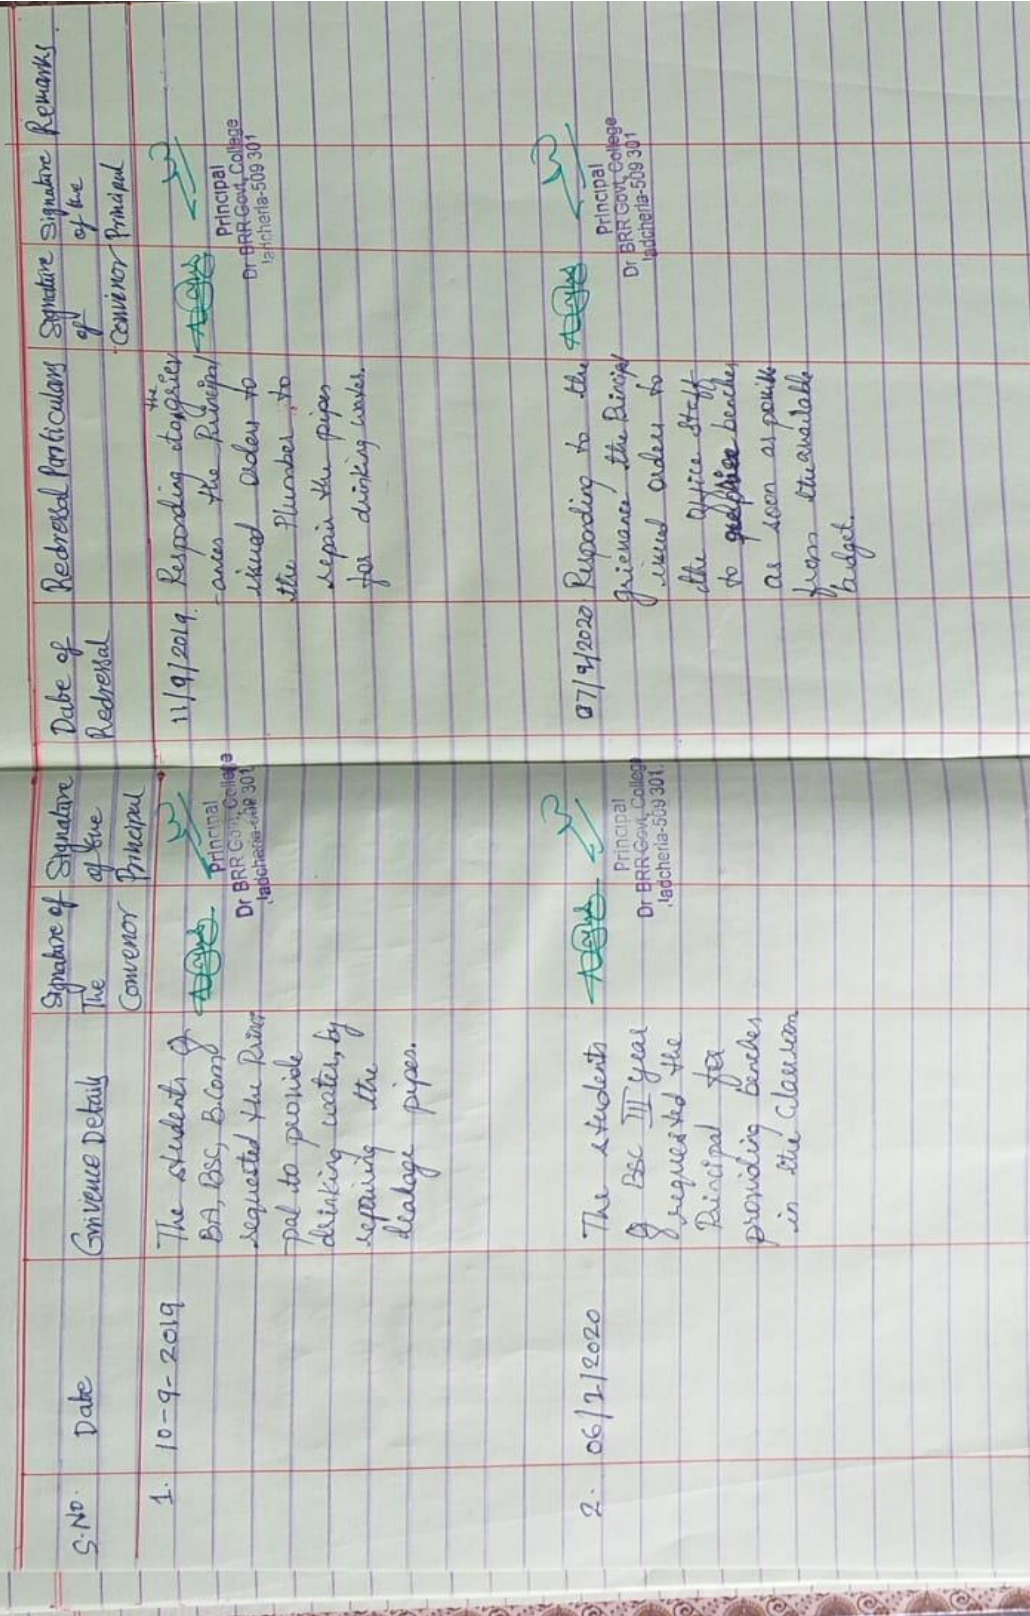 S.No. Date Grivence Details Signature of The Convenor Signature of the Principal Date of Redressal Redressal Particulars Signature of Convenor Signature of the Principal Remarks.
1. 10-9-2019
The students of
BA, BSC, B.Com
requested the Princi
pal to provide
drinking water, by
repairing the
leakage pipes.
Principal
Dr BRR Govt. College
Jadcherla-509 301
11/9/2019.
Responding to the griev
-ances the Principal
issued orders to
the Plumber, to
repair the pipes
for drinking water.
Principal
Dr BRR Govt. College
Jadcherla-509 301
2. 06/2/2020
The students
of BSC III year
requested the
Principal for
providing benches
in the Classroom
Principal
Dr BRR Govt. College
Jadcherla-509 301.
07/2/2020
Responding to the
grievance the Principal
issued orders to
the office staff
to benches
as soon as possible
from the available
budget.
Principal
Dr BRR Govt. College
Jadcherla-509 301